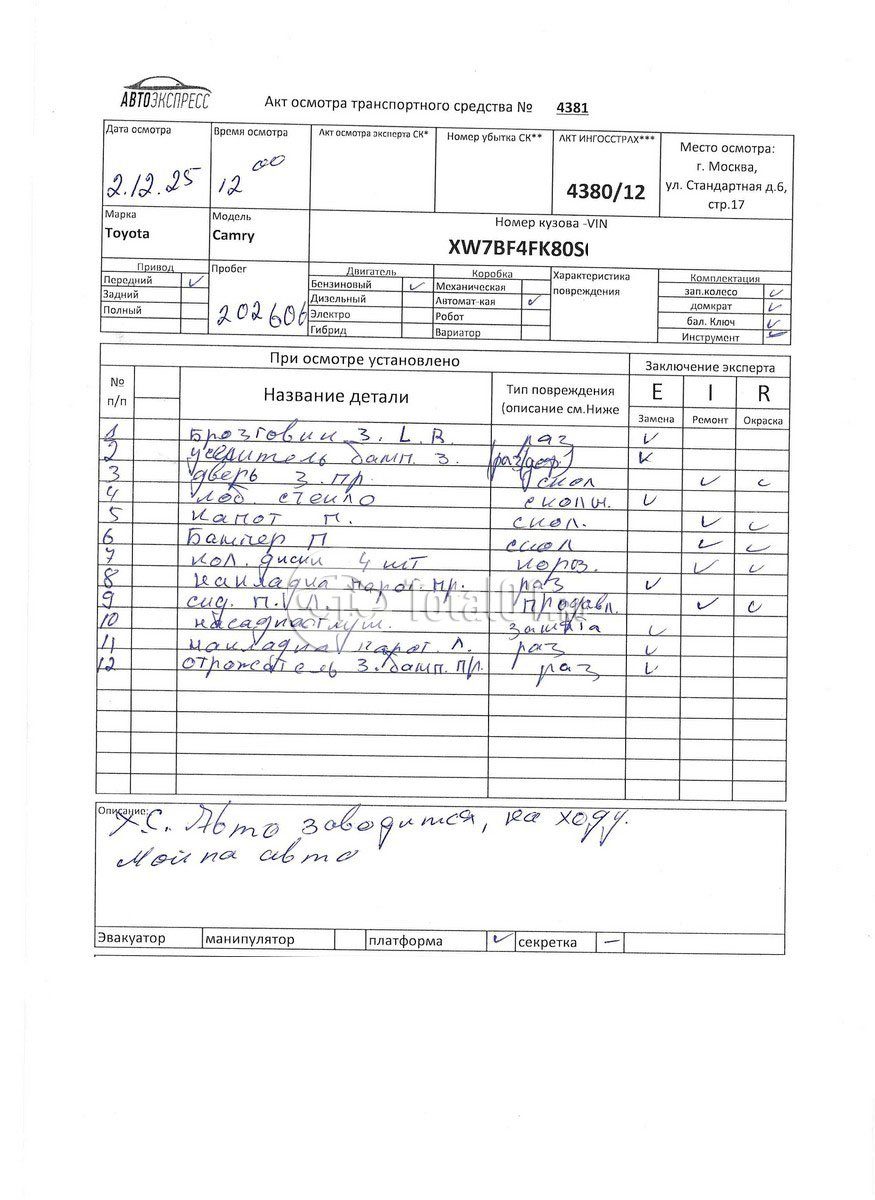 АВТОЭКСПРЕСС
Акт осмотра транспортного средства № 4381
Дата осмотра
2.12.25
Время осмотра
12 00
Акт осмотра эксперта СК*
Номер убытка СК**
АКТ ИНГОССТРАХ***
4380/12
Место осмотра:
г. Москва,
ул. Стандартная д.6,
стр.17
Марка
Toyota
Модель
Camry
Номер кузова -VIN
XW7BF4FK80S
Привод
Передний ✓
Задний
Полный
Пробег
202606
Двигатель
Бензиновый ✓
Дизельный
Электро
Гибрид
Коробка
Механическая
Автомат-кая ✓
Робот
Вариатор
Характеристика
повреждения
Комплектация
зап.колесо ✓
домкрат ✓
бал. Ключ ✓
Инструмент ✓
При осмотре установлено
Заключение эксперта
№
п/п
Название детали
Тип повреждения
(описание см.Ниже
E I R
Замена Ремонт Окраска
1 Брозговик 3. L. R. раз ✓
2 усилитель бамп. 3. раз/деф ✓
3 дверь 3. пр. скол ✓ ✓
4 лоб. стекло сколы. ✓
5 капот п. скол. ✓ ✓
6 Бампер П скол ✓ ✓
7 кол. диски 4 шт короз. ✓ ✓
8 накладка парог. пр. раз ✓
9 сид. п. продавл. ✓ ✓
10 насадка глуш. ✓
11 накладка парог. Л. раз ✓
12 отрожатель 3. бамп. пр. раз ✓
Total01.ru
Описание:
Х.С. Авто заводится, на ходу.
Мойка авто
Эвакуатор манипулятор платформа ✓ секретка —